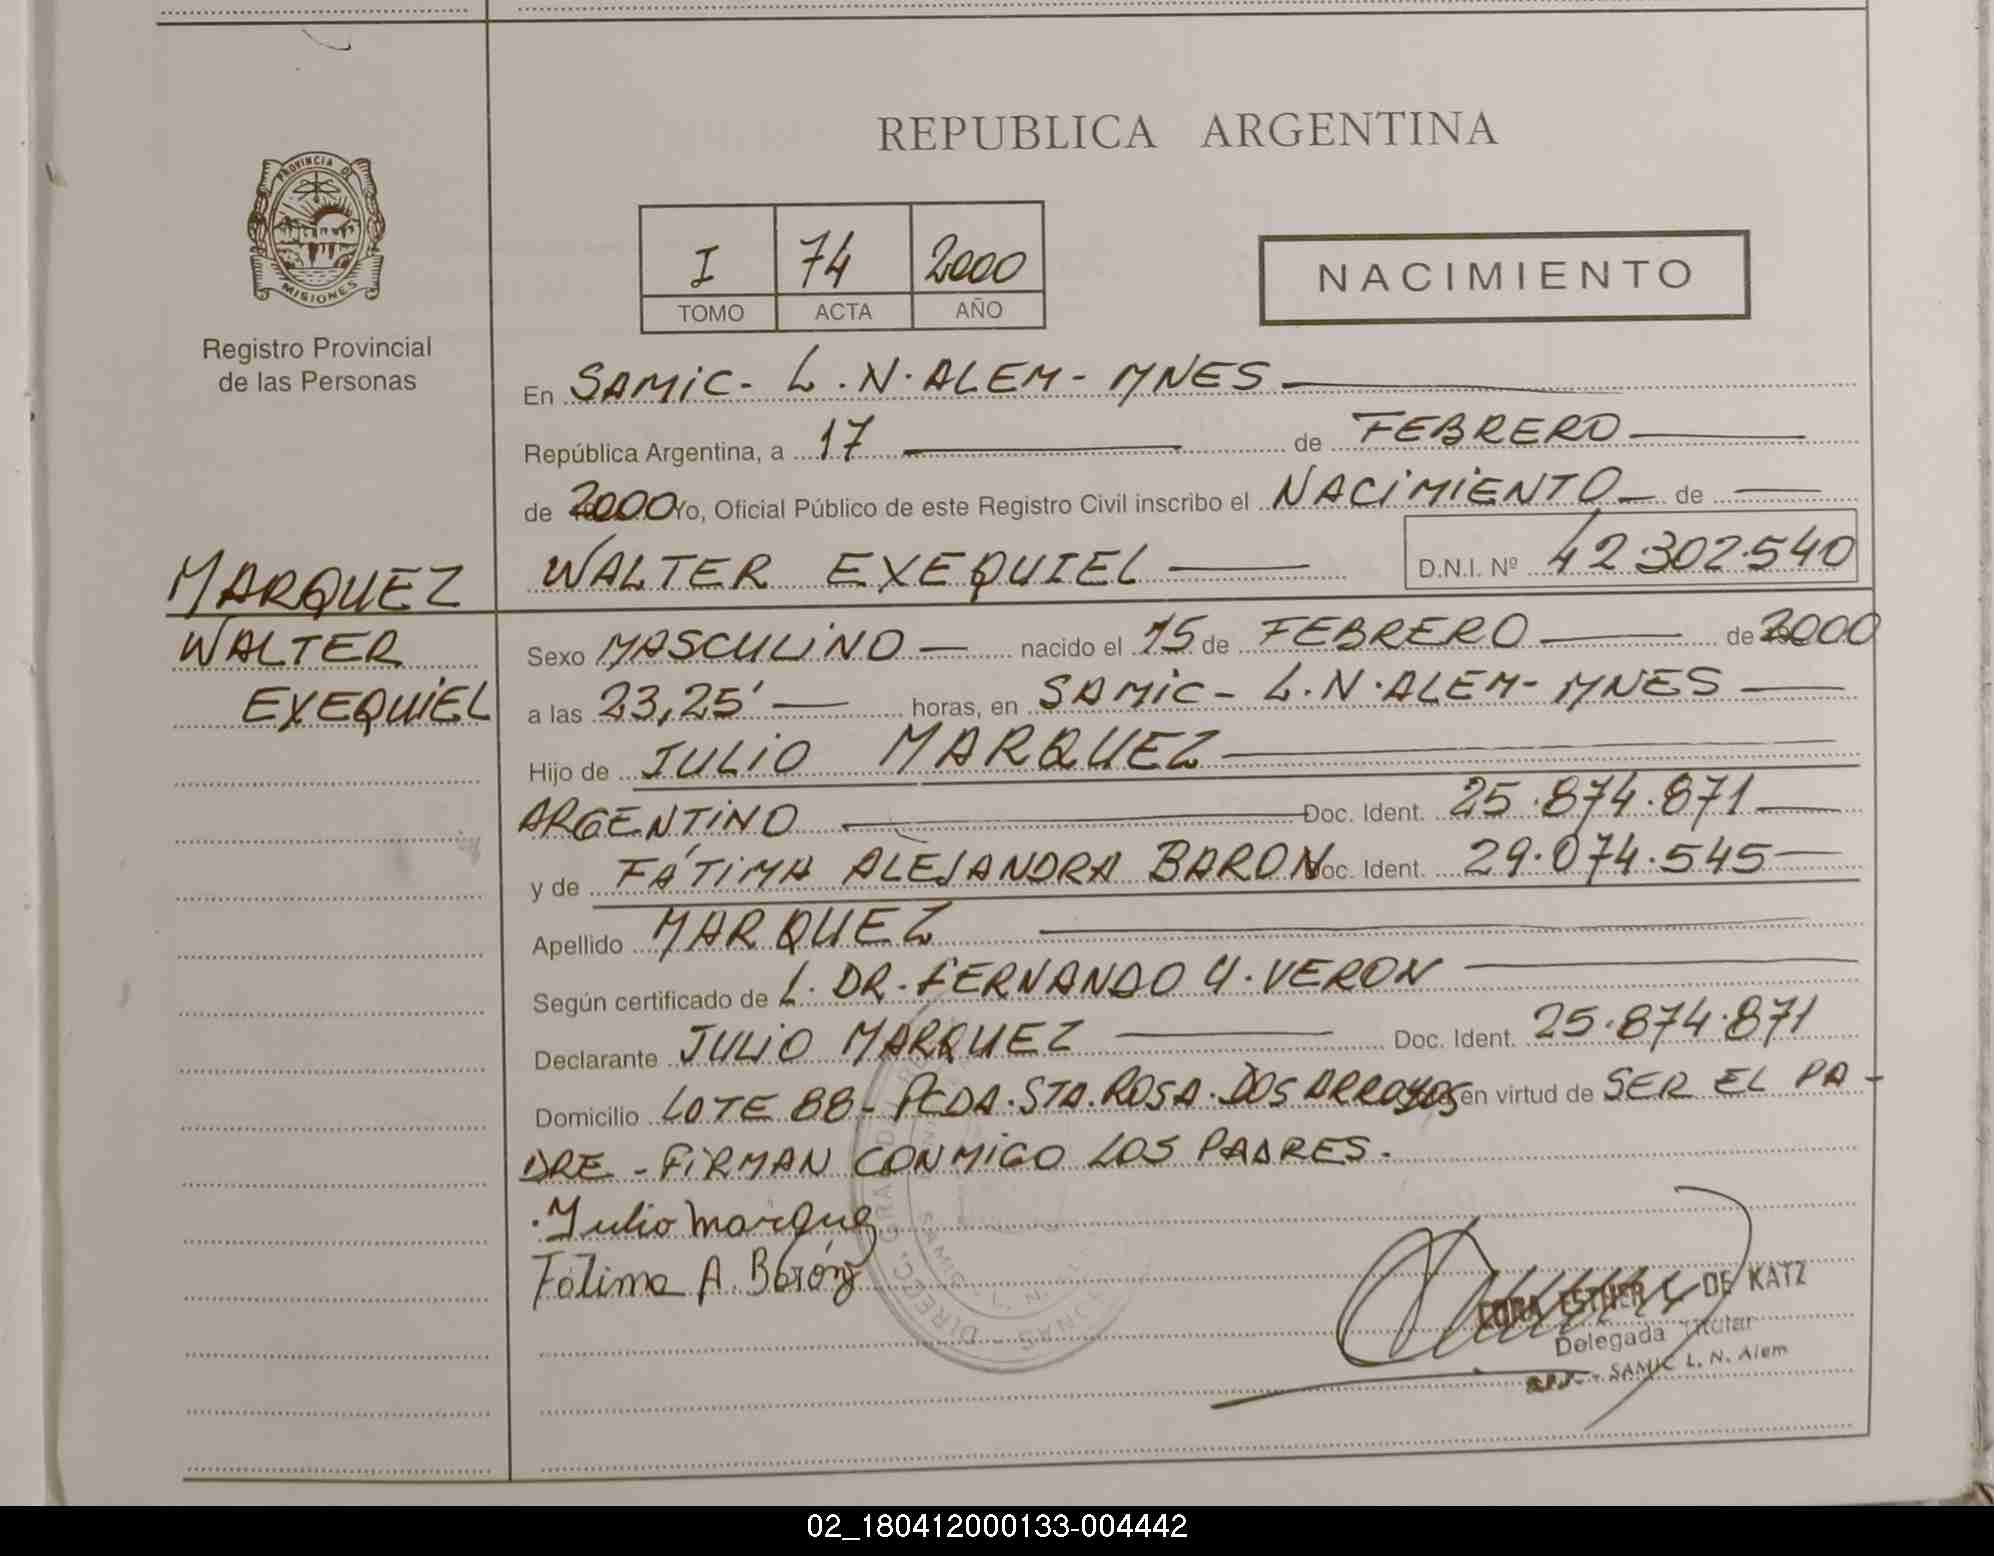 REPUBLICA ARGENTINA
PROVINCIA DE
MISIONES
Registro Provincial
de las Personas
I 74 2000
TOMO ACTA AÑO
NACIMIENTO
En SAMIC - L.N. ALEM - MNES
República Argentina, a 17 de FEBRERO
de 2000 Yo, Oficial Público de este Registro Civil inscribo el NACIMIENTO de
WALTER EXEQUIEL D.N.I. Nº 42.302.540
MARQUEZ
WALTER
EXEQUIEL
Sexo MASCULINO nacido el 15 de FEBRERO de 2000
a las 23,25' horas, en SAMIC - L.N. ALEM - MNES
Hijo de JULIO MARQUEZ
ARGENTINO Doc. Ident. 25.874.871
y de FÁTIMA ALEJANDRA BARON Doc. Ident. 29.074.545
Apellido MARQUEZ
Según certificado de L. DR. FERNANDO U. VERON
Declarante JULIO MARQUEZ Doc. Ident. 25.874.871
Domicilio LOTE 88 - PCDA. STA. ROSA. DOS ARROYOS en virtud de SER EL PA-
DRE - FIRMAN CONMIGO LOS PADRES.
Julio Marquez
Fátima A. Barón
ESTHER DE KATZ
Delegada Titular
SAMIC L. N. Alem
DIREC. GRAL. DE
SAMIC L. N.
02_180412000133-004442